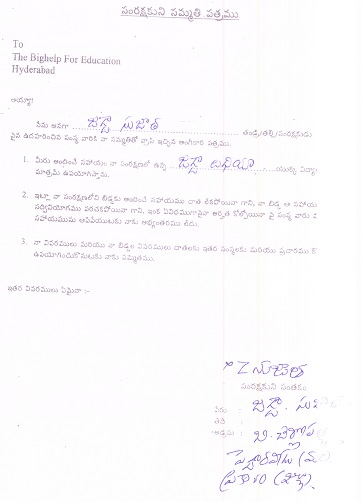 సంరక్షకుని సమ్మతి పత్రము
To
The Bighelp For Education
Hyderabad
అయ్యా!
నేను అనగా ........ సుజాత ........ తండ్రి/తల్లి/సంరక్షకుడు
పైన ఉదహరించిన సంస్థ వారికి నా సమ్మతితో వ్రాసి ఇచ్చిన అంగీకార పత్రము.
1. మీరు అందించే సహాయం నా సంరక్షణలో ఉన్న ........ యొక్క విద్యా
మాత్రమే ఉపయోగిస్తాను.
2. ఇట్లా నా సంరక్షణలోని బిడ్డకు అందించే సహాయము దాత లేకపోయినా గాని, నా బిడ్డ ఆ సహాయ
సద్వినియోగము పరచకపోయినా గాని, ఇంక ఏవిధముగానైనా అర్హత కోల్పోయినా పై సంస్థ వారు
సహాయమును ఆపివేయుటకు నాకు అభ్యంతరము లేదు.
3. నా వివరములు మరియు నా బిడ్డల వివరములు దాతలకు ఇతర సంస్థలకు మరియు ప్రచారము
ఉపయోగించుకొనుటకు నాకు సమ్మతము.
ఇతర వివరములు ఏమైనా :-
సంరక్షకుని సంతకం
పేరు :
తేది :
అడ్రసు :
ప్రకాశం (జిల్లా).